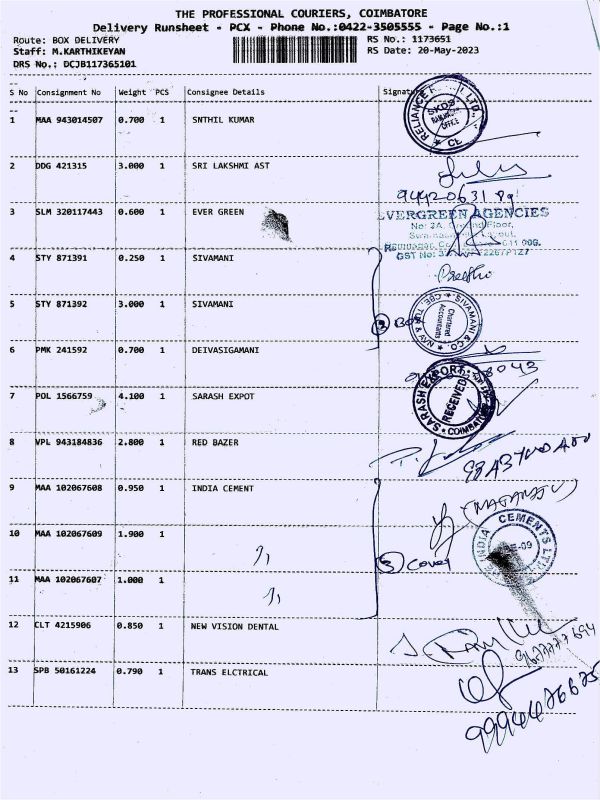 THE PROFESSIONAL COURIERS, COIMBATORE
Delivery Runsheet - PCX - Phone No.:0422-3505555 - Page No.:1
Route: BOX DELIVERY
RS No.: 1173651
Staff: M.KARTHIKEYAN
RS Date: 20-May-2023
DRS No.: DCJB117365101
S No Consignment No Weight PCS Consignee Details Signature
1 MAA 943014507 0.700 1 SNTHIL KUMAR
RELIANCE LTD
2 DDG 421315 3.000 1 SRI LAKSHMI AST
3 SLM 320117443 0.600 1 EVER GREEN
EVERGREEN AGENCIES
GST No:
4 STY 871391 0.250 1 SIVAMANI
5 STY 871392 3.000 1 SIVAMANI
SIVAMANI & CO.
Chartered
Accountants
6 PMK 241592 0.700 1 DEIVASIGAMANI
7 POL 1566759 4.100 1 SARASH EXPOT
SARASH EXPORT
RECEIVED
COIMBATORE
8 VPL 943184836 2.800 1 RED BAZER
9 MAA 102067608 0.950 1 INDIA CEMENT
10 MAA 102067609 1.900 1
INDIA CEMENTS LTD
3 cover
11 MAA 102067607 1.000 1
12 CLT 4215906 0.850 1 NEW VISION DENTAL
13 SPB 50161224 0.790 1 TRANS ELCTRICAL